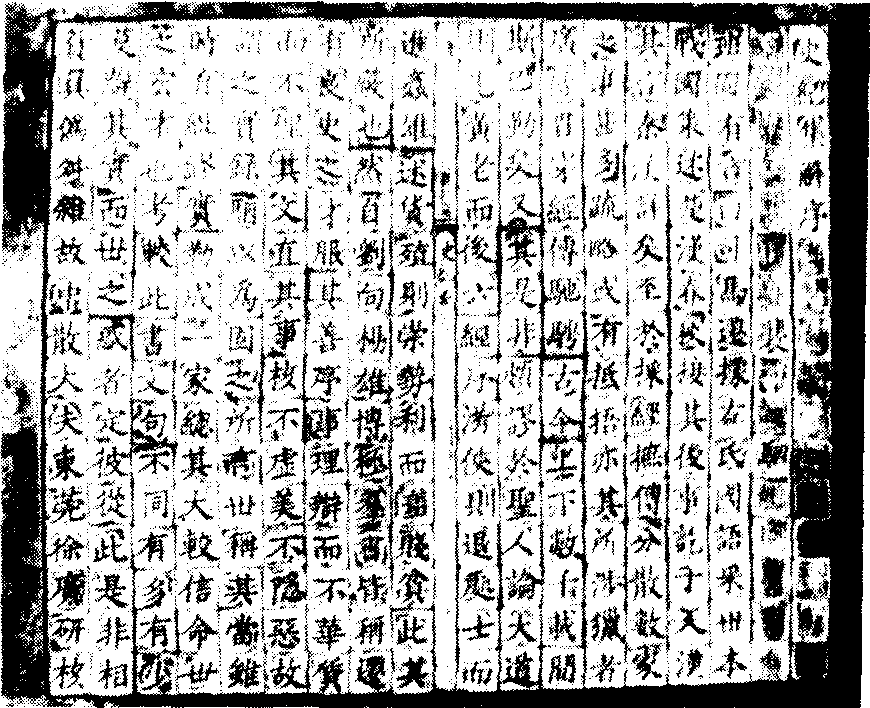 史記集解序
班固有言曰司馬遷據左氏國語采世本
戰國策述楚漢春秋接其後事訖于天漢
其言秦漢詳矣至於採經摭傳分散數家
之事甚多疏略或有抵捂亦其所涉獵者
廣博貫穿經傳馳騁古今上下數千載間
斯已勤矣又其是非頗謬於聖人論大道
則先黃老而後六經序游俠則退處士而
進姦雄述貨殖則崇勢利而羞賤貧此其
所蔽也然自劉向楊雄博極羣書皆稱遷
有良史之才服其善序事理辯而不華質
而不俚其文直其事核不虛美不隱惡故
謂之實錄駰以為固之所言世稱其當雖
時有紕繆實勒成一家總其大較信命世
之宏才也考較此書文句不同有多有少
莫辯其實而世之惑者定彼從此是非相
貿真偽舛雜故中散大夫東莞徐廣研核